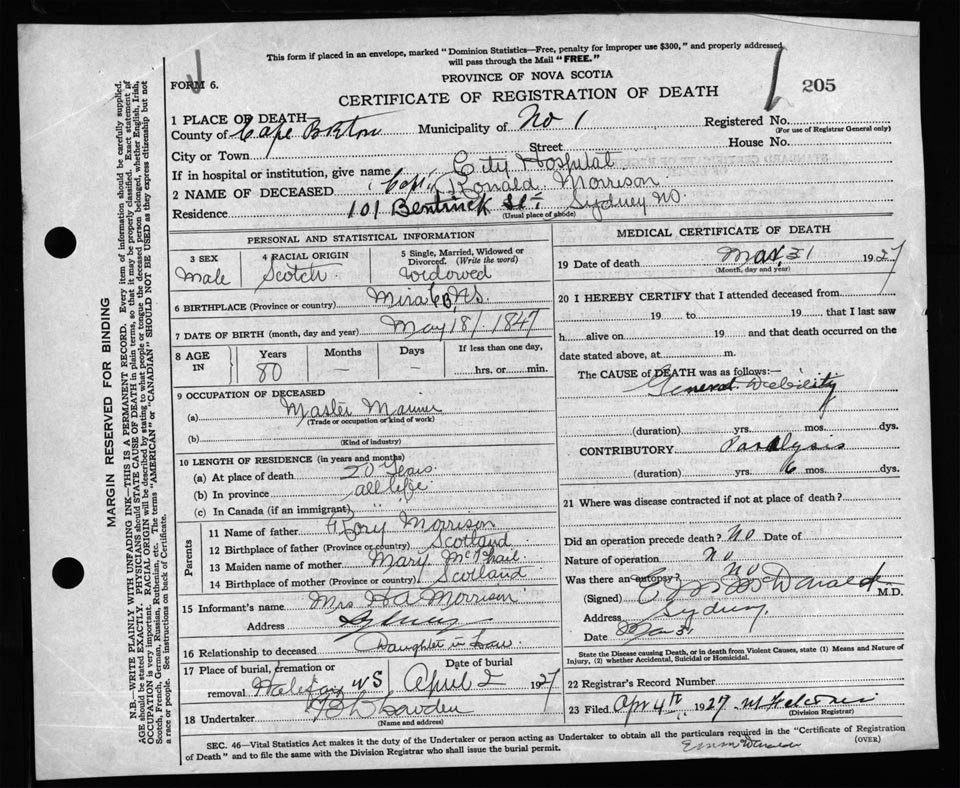 This form if placed in an envelope, marked "Dominion Statistics—Free, penalty for improper use $300," and properly addressed
will pass through the Mail "FREE."
FORM 6.
PROVINCE OF NOVA SCOTIA
205
CERTIFICATE OF REGISTRATION OF DEATH
1 PLACE OF DEATH
County of Cape Breton Municipality of No 1 Registered No.
(For use of Registrar General only)
Street House No.
City or Town
If in hospital or institution, give name City Hospital
2 NAME OF DECEASED (Capt) Ronald Morrison
Residence 101 Bentinck St Sydney NS.
(Usual place of abode)
PERSONAL AND STATISTICAL INFORMATION
3 SEX
Male
4 RACIAL ORIGIN
Scotch
5 Single, Married, Widowed or Divorced. (Write the word)
Widowed
6 BIRTHPLACE (Province or country) Mira C.B, N.S.
7 DATE OF BIRTH (month, day and year) May 18/ 1847
8 AGE IN
Years Months Days If less than one day,
80 — — hrs. or min.
9 OCCUPATION OF DECEASED
(a) Master Mariner
(Trade or occupation or kind of work)
(b)
(Kind of industry)
10 LENGTH OF RESIDENCE (in years and months)
(a) At place of death 20 Years.
(b) In province all life
(c) In Canada (if an immigrant)
Parents
11 Name of father Rory Morrison
12 Birthplace of father (Province or country) Scotland
13 Maiden name of mother Mary McPhail
14 Birthplace of mother (Province or country) Scotland
15 Informant's name Mrs H A Morrison
Address Sydney
16 Relationship to deceased Daughter in Law
17 Place of burial, cremation or removal Halifax NS
Date of burial
April 2 1927
18 Undertaker
(Name and address)
MEDICAL CERTIFICATE OF DEATH
19 Date of death Mar, 31 1927
(Month, day and year)
20 I HEREBY CERTIFY that I attended deceased from
19 to 19 that I last saw
h alive on 19 and that death occurred on the
date stated above, at m.
The CAUSE of DEATH was as follows:—
General Debility
(duration) yrs. mos. dys.
CONTRIBUTORY Paralysis
(duration) yrs. 6 mos. dys.
21 Where was disease contracted if not at place of death?
Did an operation precede death? No Date of
Nature of operation No
Was there an autopsy? No
(Signed) McDonald M.D.
Address Sydney,
Date Mar 31
State the Disease causing Death, or in death from Violent Causes, state (1) Means and Nature of Injury, (2) whether Accidental, Suicidal or Homicidal.
22 Registrar's Record Number
23 Filed Apr 4th 1927
(Division Registrar)
SEC. 46—Vital Statistics Act makes it the duty of the Undertaker or person acting as Undertaker to obtain all the particulars required in the "Certificate of Registration
of Death" and to file the same with the Division Registrar who shall issue the burial permit.
(OVER)
MARGIN RESERVED FOR BINDING
N.B.—WRITE PLAINLY WITH UNFADING INK—THIS IS A PERMANENT RECORD. Every item of information should be carefully supplied.
AGE should be stated EXACTLY. PHYSICIANS should STATE CAUSE OF DEATH in plain terms, so that it may be properly classified. Exact statement of
OCCUPATION is very important. RACIAL ORIGIN will be described by stating to what people or tongue the deceased person belonged, whether English, Irish,
Scotch, French, German, Russian, Ruthenian, etc. The terms "AMERICAN" or "CANADIAN" SHOULD NOT BE USED as they express citizenship but not
a race or people. See instructions on back of Certificate.